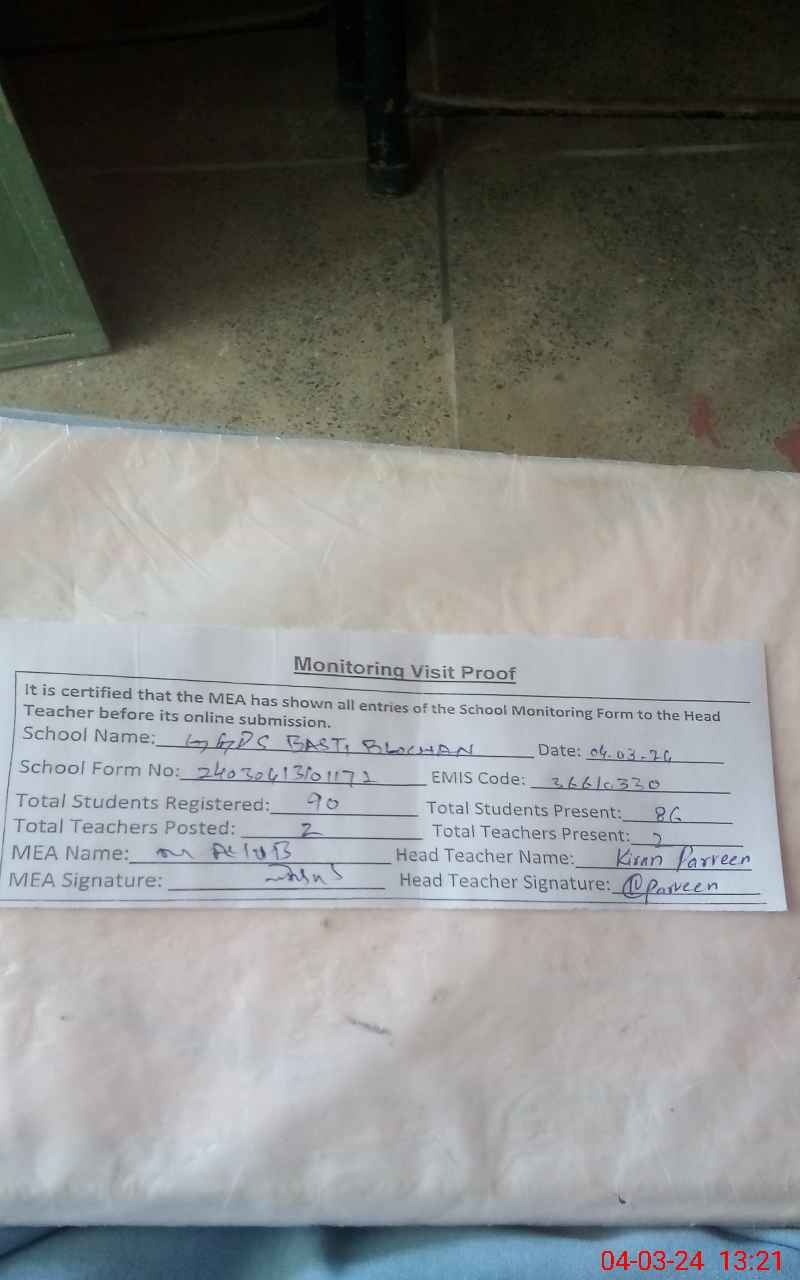 Monitoring Visit Proof
It is certified that the MEA has shown all entries of the School Monitoring Form to the Head
Teacher before its online submission.
School Name: GGPS BASTI BLOCHAN Date: 04.03.24
School Form No: 24030413101172 EMIS Code: 36610330
Total Students Registered: 90 Total Students Present: 86
Total Teachers Posted: 2 Total Teachers Present: 2
MEA Name: Head Teacher Name: Kiran Parveen
MEA Signature: Head Teacher Signature: Parveen
04-03-24 13:21